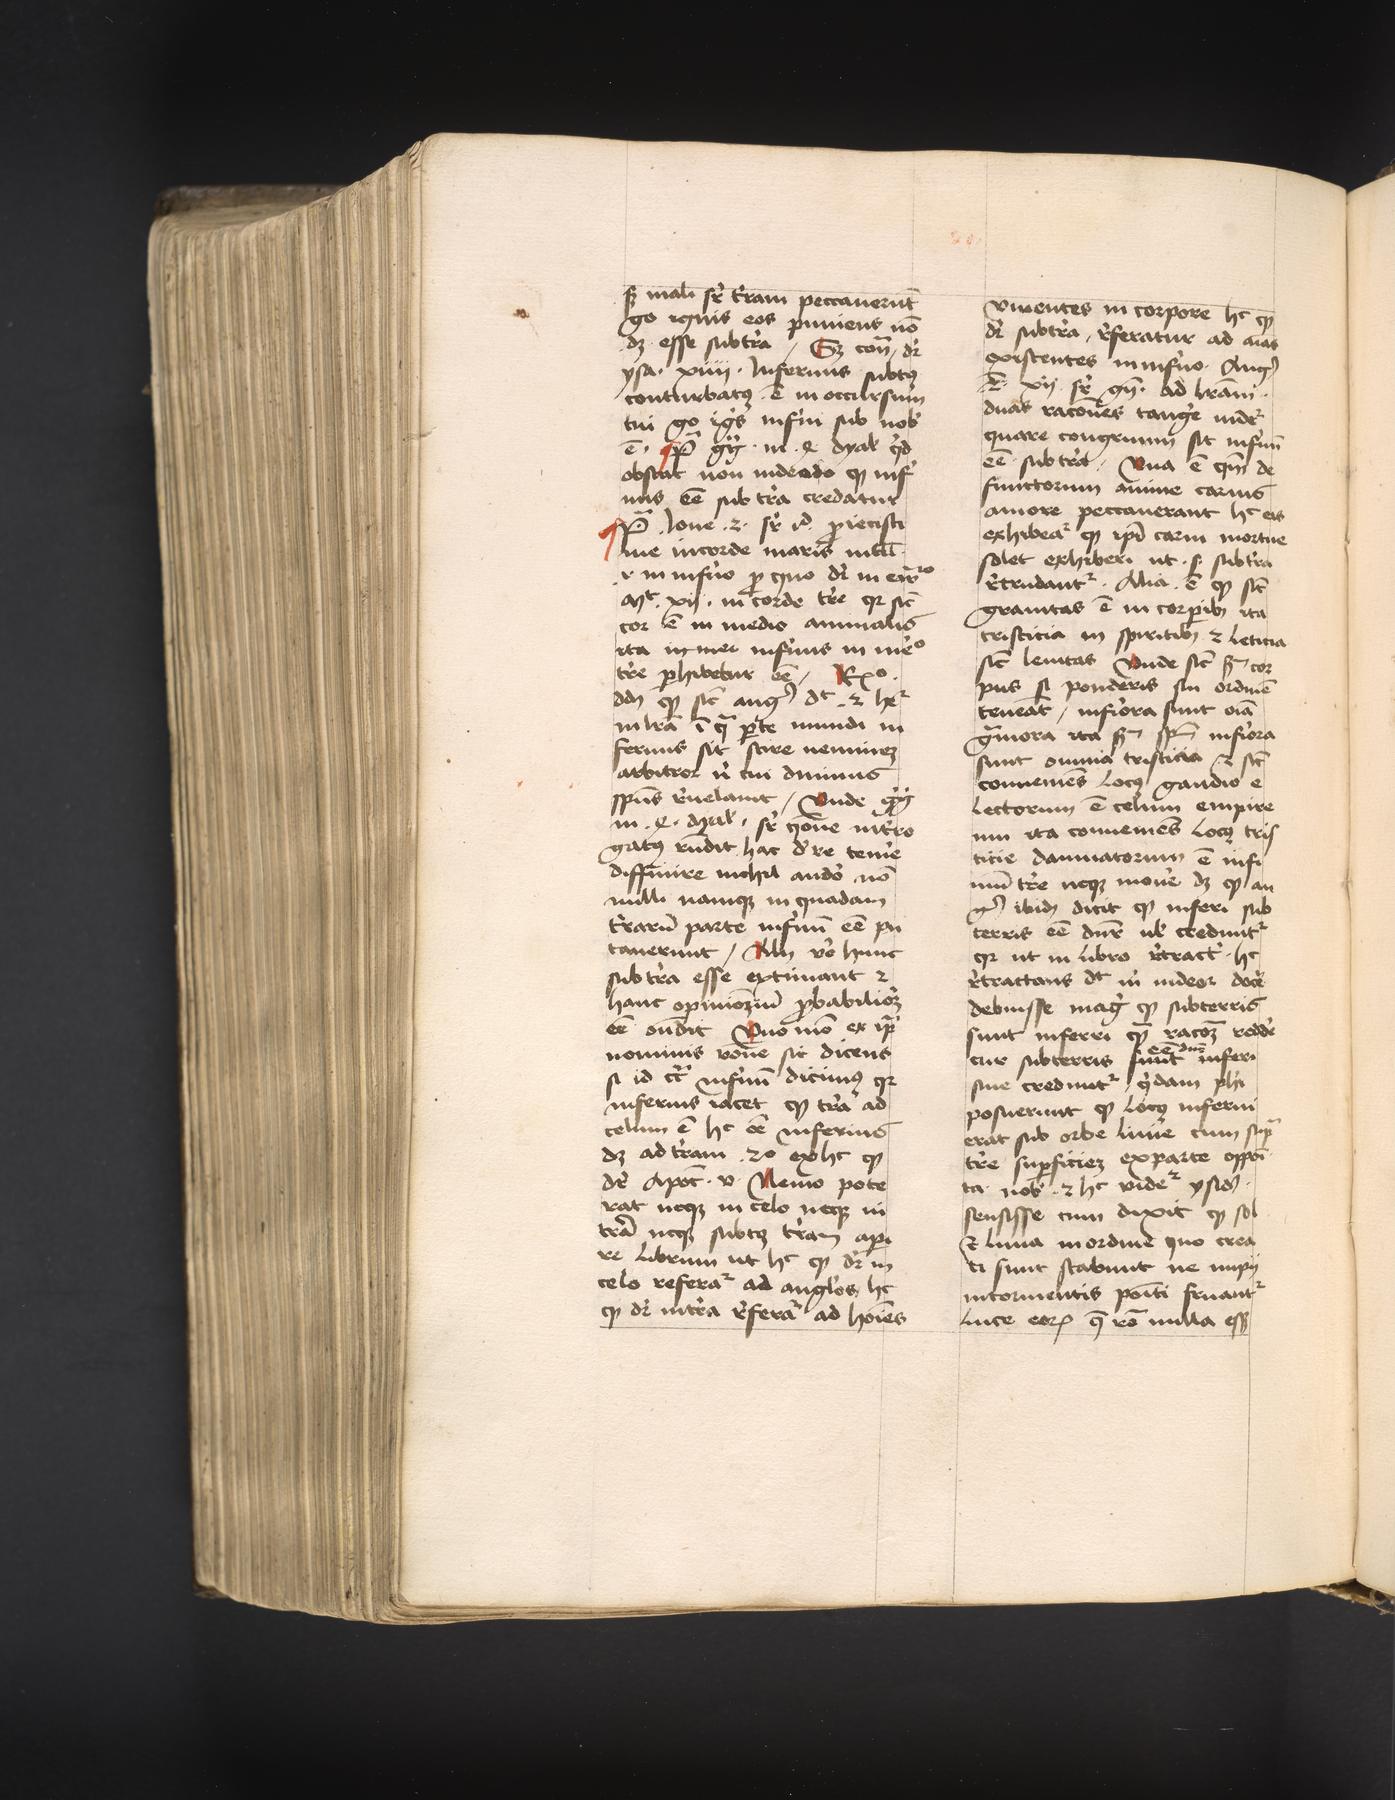 sꝫ mali sr̄ tr̄am peccauerūt
go ignis eos puniens nō
dꝫ esse sub tr̄a / Sꝫ con̄ dr̄
ysa. xiiii. Infernus subtꝯ
conturbatꝯ ē in occursum
tui go igis infn̄i sub nob̄
ē. ¶ Pᵃ gg̅. in. 4 dyal̄ qd̄
obstat non uideo qꝫ inf̄
nus eē sub tr̄a credatur
¶ Pᵃ Ione .2. sr̄ id̄. proiecisti
me in corde maris
.i. in inf̄no pro quo dr̄ in eūᵒ
Mᵗ. xij. in corde tr̄e qr sic̄
cor ē in medio animalis
ita infern̄us in meᵒ
tr̄e perhibetur eē / Rxᵒ.
ddꝫ qꝫ sic̄ augꝰ dt̄ .2 heʳ
in lr̄a ī qᵃ parte mundi in
fernus sit scire neminez
arbitror n̄ cui diuinus
spūs reuelauit / Vnde gg̅
in .4. dyal̄. sr̄ qōne int̄ro
gatꝯ rn̄dit hac d̄ re tem̄e
diffinire nichil audeo nō
nulli namqꝫ in quadam
tr̄arū parte inf̄num eē pu
tauerunt / Alij vo hunc
sub tr̄a esse extimant 2
hanc opinionem probabiliorꝫ
eē on̄dit Quo mo ex ip̄
nominis rōne sic dicens
si id cr̄o inf̄nū dicimꝯ qr
inferius iacet qꝫ tr̄a ad
celum ē hᶜ eē inferius
dꝫ ad tr̄am .2º ex hᶜ qꝫ
dr̄ Apoc̄. v. Nemo pote
rat neqꝫ in celo neqꝫ in
tr̄a neqꝫ subtꝯ tr̄am api
re librum ut hᶜ qꝫ dr̄ in
celo referaʳ ad angl̄os hᶜ
qꝫ dr̄ in tr̄a r̄feraʳ ad hoīes
viuentes in corpore hᶜ qꝫ
dr̄ sub tr̄a, r̄feratur ad aīas
existentes in inf̄no. Augꝰ
xij. sr̄ gn̄. ad lr̄am.
duas racōnes tang̅e uideʳ
quare congruum sit inf̄nū
eē sub tr̄a / Vna ē qm̄ de
functorum anime carnis
amore peccauerant hᶜ eis
exhibeaʳ qꝫ ip̄i carni mortue
solet exhiberi ut .s. sub tr̄a
r̄trudantʳ. Alia. ē qꝫ sic̄
grauitas ē in corpibꝫ ita
tristicia in spiritibꝫ 2 leticia
sic̄ leuitas Vnde sic̄ cor
pus si ponderis sui ordinē
teneāt / inf̄iora sunt oīa
gᵃuiora ita spm̄ inf̄iora
sunt omnia tristicia 2 sic̄
conueniens locꝯ gaudio e
lectorum ē celum empire
um ita conueniēs locꝯ tris
ticie damnatorum ē infi
mū tr̄e neqꝫ mouē dꝫ qꝫ au
gꝰ ibidꝫ dicit qꝫ inferi sub
terris eē dn̄r ul̄ creduntʳ
qr ut in libro r̄tract̄. hᶜ
r̄tractans dt̄ m̄ uideor doc̄e
debuisse mag̅ qꝫ sub terris
sunt inferri qᵃ racōeꝫ redd̄e
cur sub terris sunt inferi
siue creduntʳ / qͥdam phi
posuerunt qꝫ locꝯ inferni
erat sub orbe lune cum supᵃ
tr̄e supficiez ex parte oppoī
ta nob̄. 2 hᶜ videʳ ysidꝰ.
sensisse cum dixit qꝫ sol
2 luna in ordine quo crea
ti sunt stabunt ne impij
in tormentis poīti fruantʳ
luce eorꝫ q̄ rō nulla essꝫ